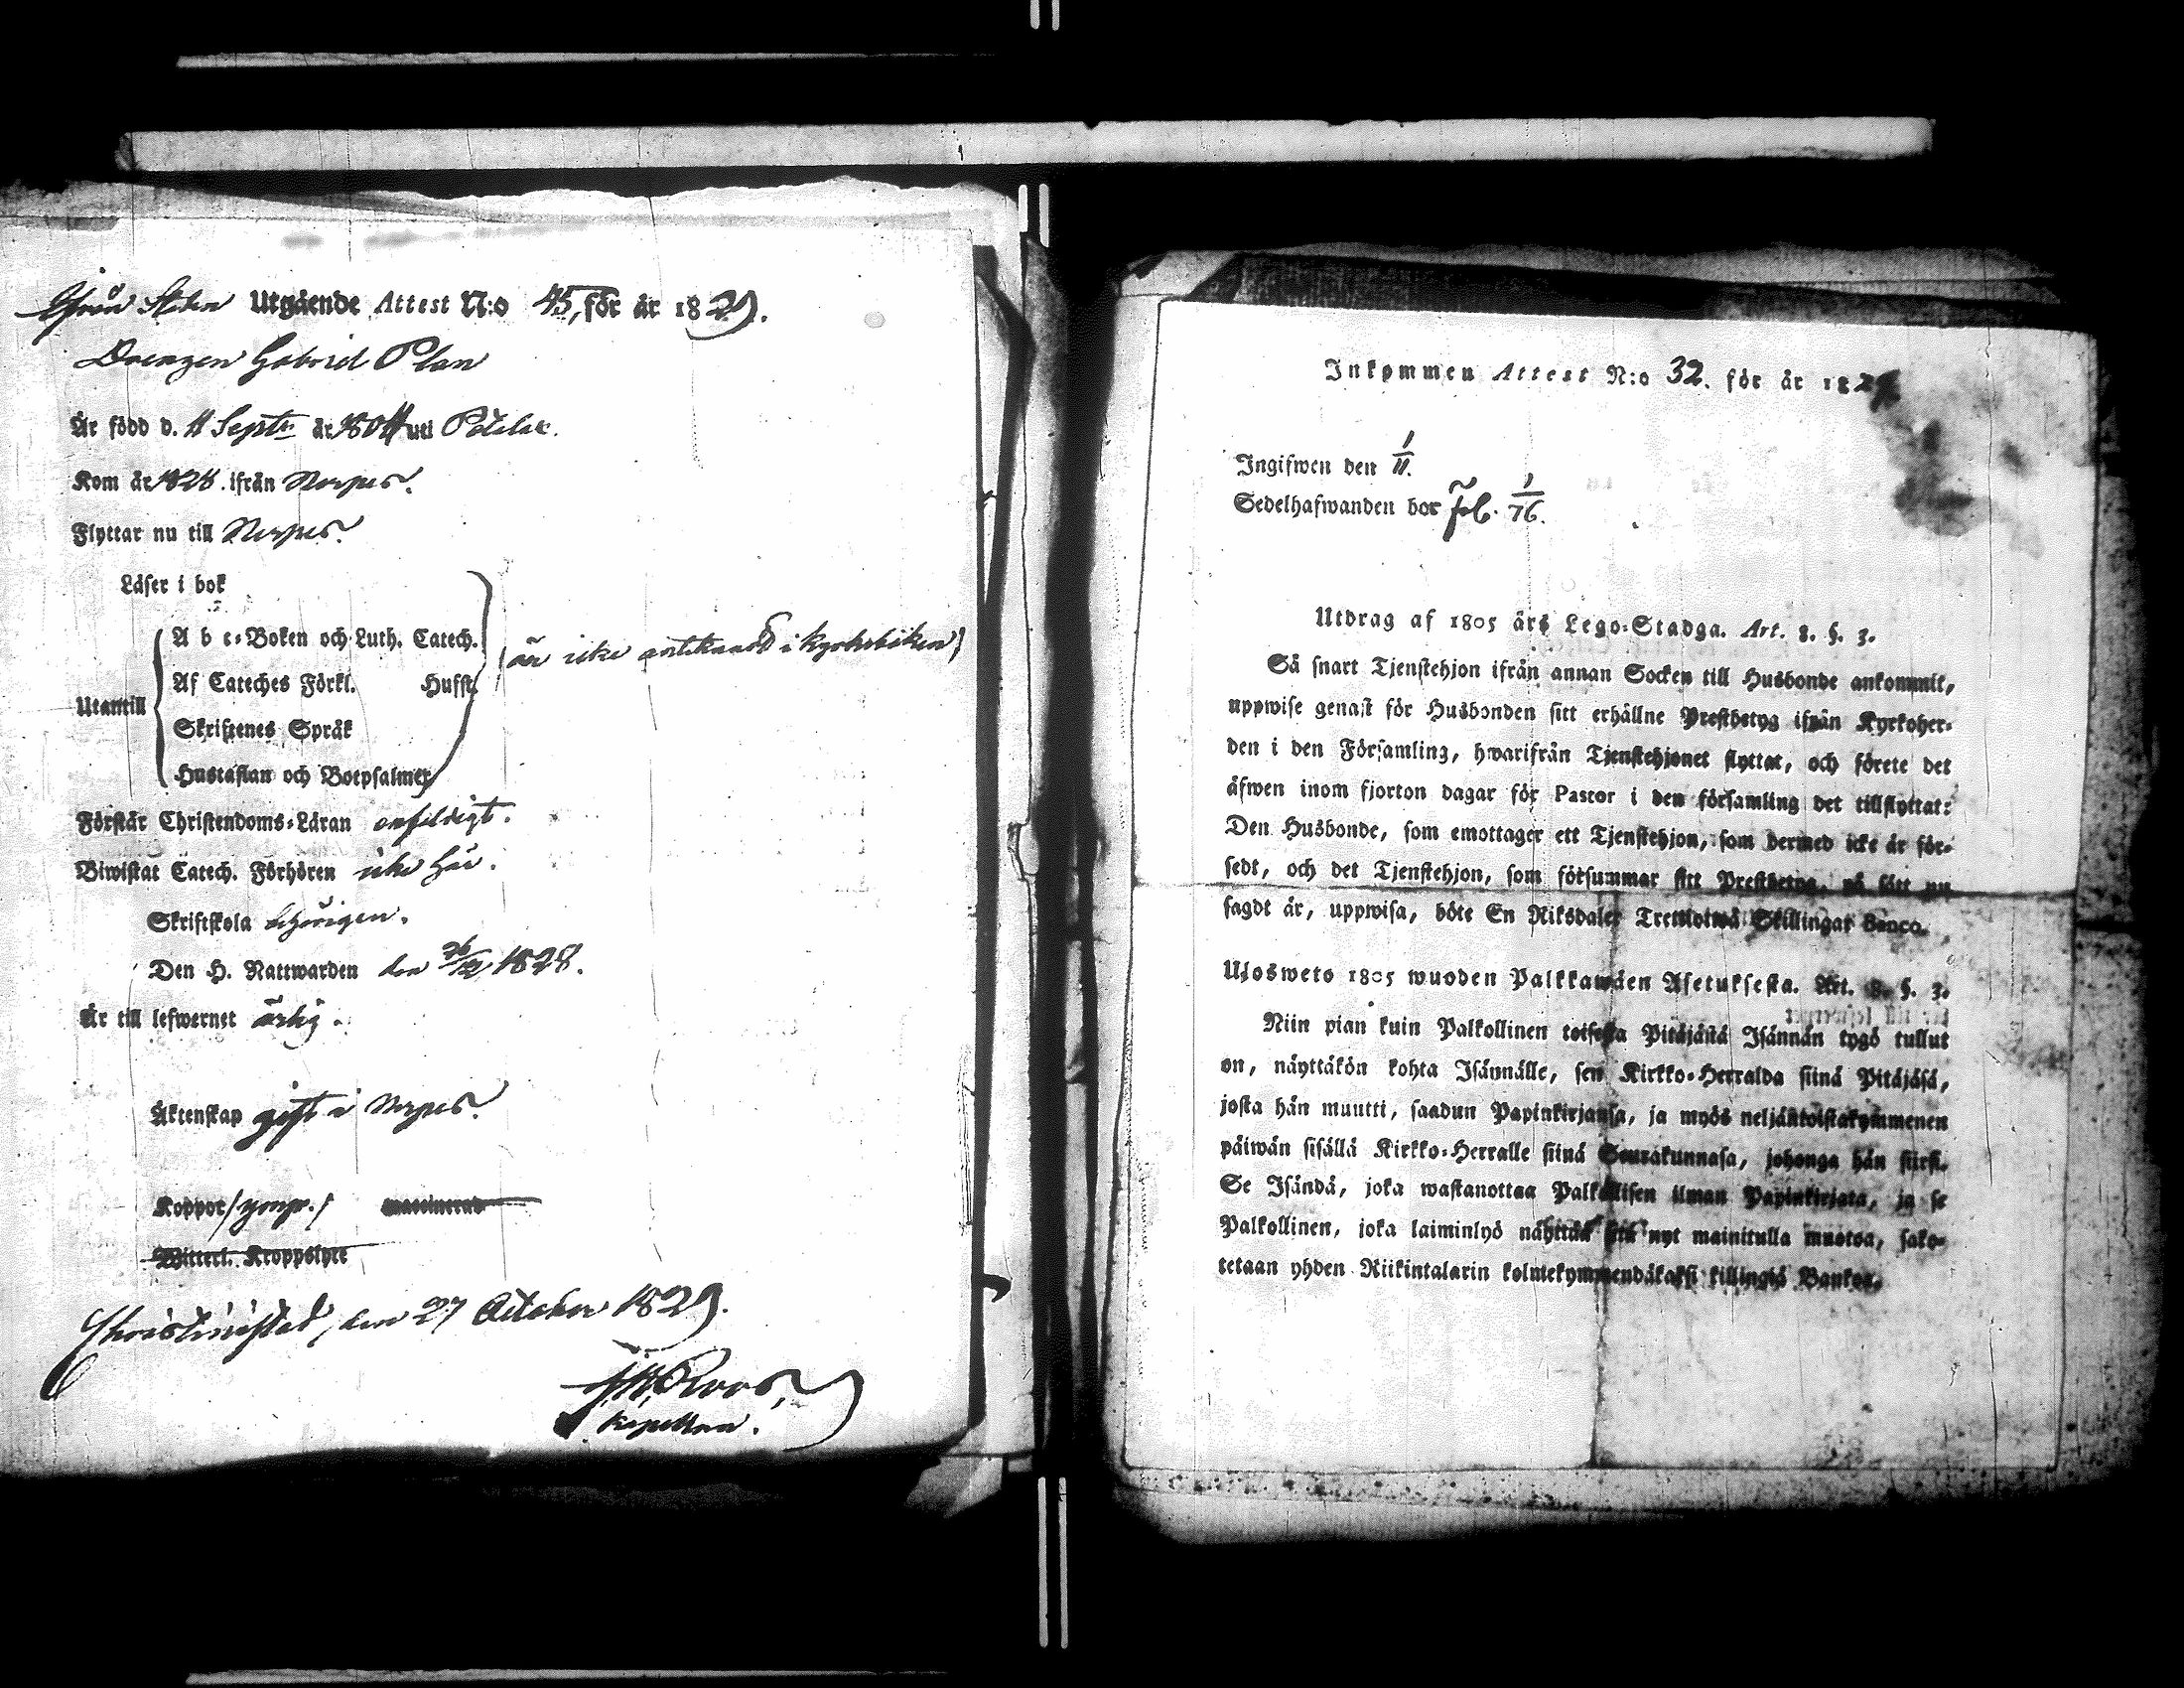 ifrån Staden Utgående Attest N:o 45, för år 1829.
Drengen Gabriel Plan
Är född d. 11 Septr år 1804 uti Pörtelar.
Kom år 1828. ifrån Nerpes.
Flyttar nu till Nerpes.
Läser i bok
A b c-Boken och Luth. Catech.
(är icke antecknadt i kyrkoboken)
Af Cateches Förkl. Hufft.
Utantill
Skriftenes Språk
Hustaflan och Botpsalmer
Förstår Christendoms-Läran enfeldigt.
Biwistat Catech. Förhören icke här.
Skriftskola behörigen.
Den H. Nattwarden den 26/12 1828.
Är till lefwernet ärlig.
Äktenskap gift i Nerpes.
Koppor /vaccinerad
Witterl. Kroppslyte
Christinestad, den 27 October 1829.
Roos,
Kapellan.
Inkommen Attest N:o 32. för år 1829
Ingifwen den 1/11.
Sedelhafwanden bor fol. 1/76.
Utdrag af 1805 års Lego-Stadga. Art. 8. §. 3.
Så snart Tjenstehjon ifrån annan Socken till Husbonde ankommit,
uppwise genast för Husbonden sitt erhållne Prestbetyg ifrån Kyrkoher-
den i den Församling, hwarifrån Tjenstehjonet flyttat, och förete det
äfwen inom fjorton dagar för Pastor i den församling det tillflyttat:
Den Husbonde, som emottager ett Tjenstehjon, som dermed icke är för-
sedt, och det Tjenstehjon, som försummar sitt Prestbetyg, på sätt nu
sagdt är, uppwisa, böte En Riksdaler Trettiotwå Skillingar Banco.
Ulosweto 1805 wuoden Palkkawäen Asetuksesta. Art. 8. §. 3.
Niin pian kuin Palkollinen toisesta Pitäjästä Isännän tygö tullut
on, näyttäkön kohta Isännälle, sen Kirkko-Herralda siinä Pitäjäsä,
josta hän muutti, saadun Papinkirjansa, ja myös neljäntoistakymmenen
päiwän sisällä Kirkko-Herralle siinä Seurakunnasa, johonga hän siirsi.
Se Isändä, joka wastanottaa Palkollisen ilman Papinkirjata, ja se
Palkollinen, joka laiminlyö näyttää sitä nyt mainitulla muotoa, sako-
tetaan yhden Riikintalarin kolmekymmendäkaksi killingiä Bankos.